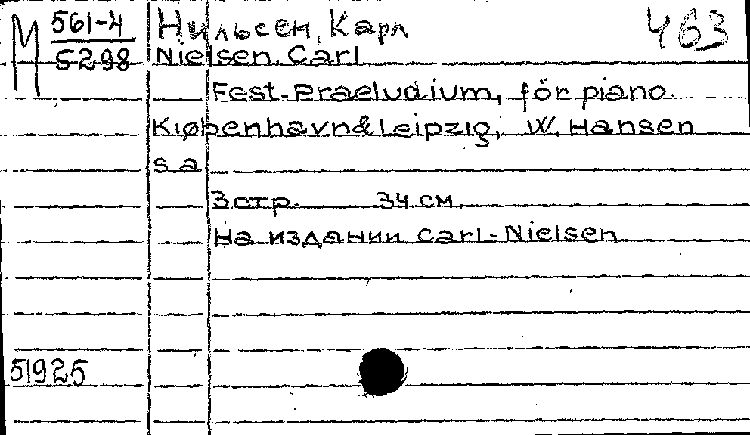 М 561-4 Нильсен, Карл 463
5298 Nielsen, Carl
Fest-Praeludium, för piano.
Kiøbenhavn&Leipzig, W. Hansen
s a
3 стр. 34 см.
На издании Carl-Nielsen
51925